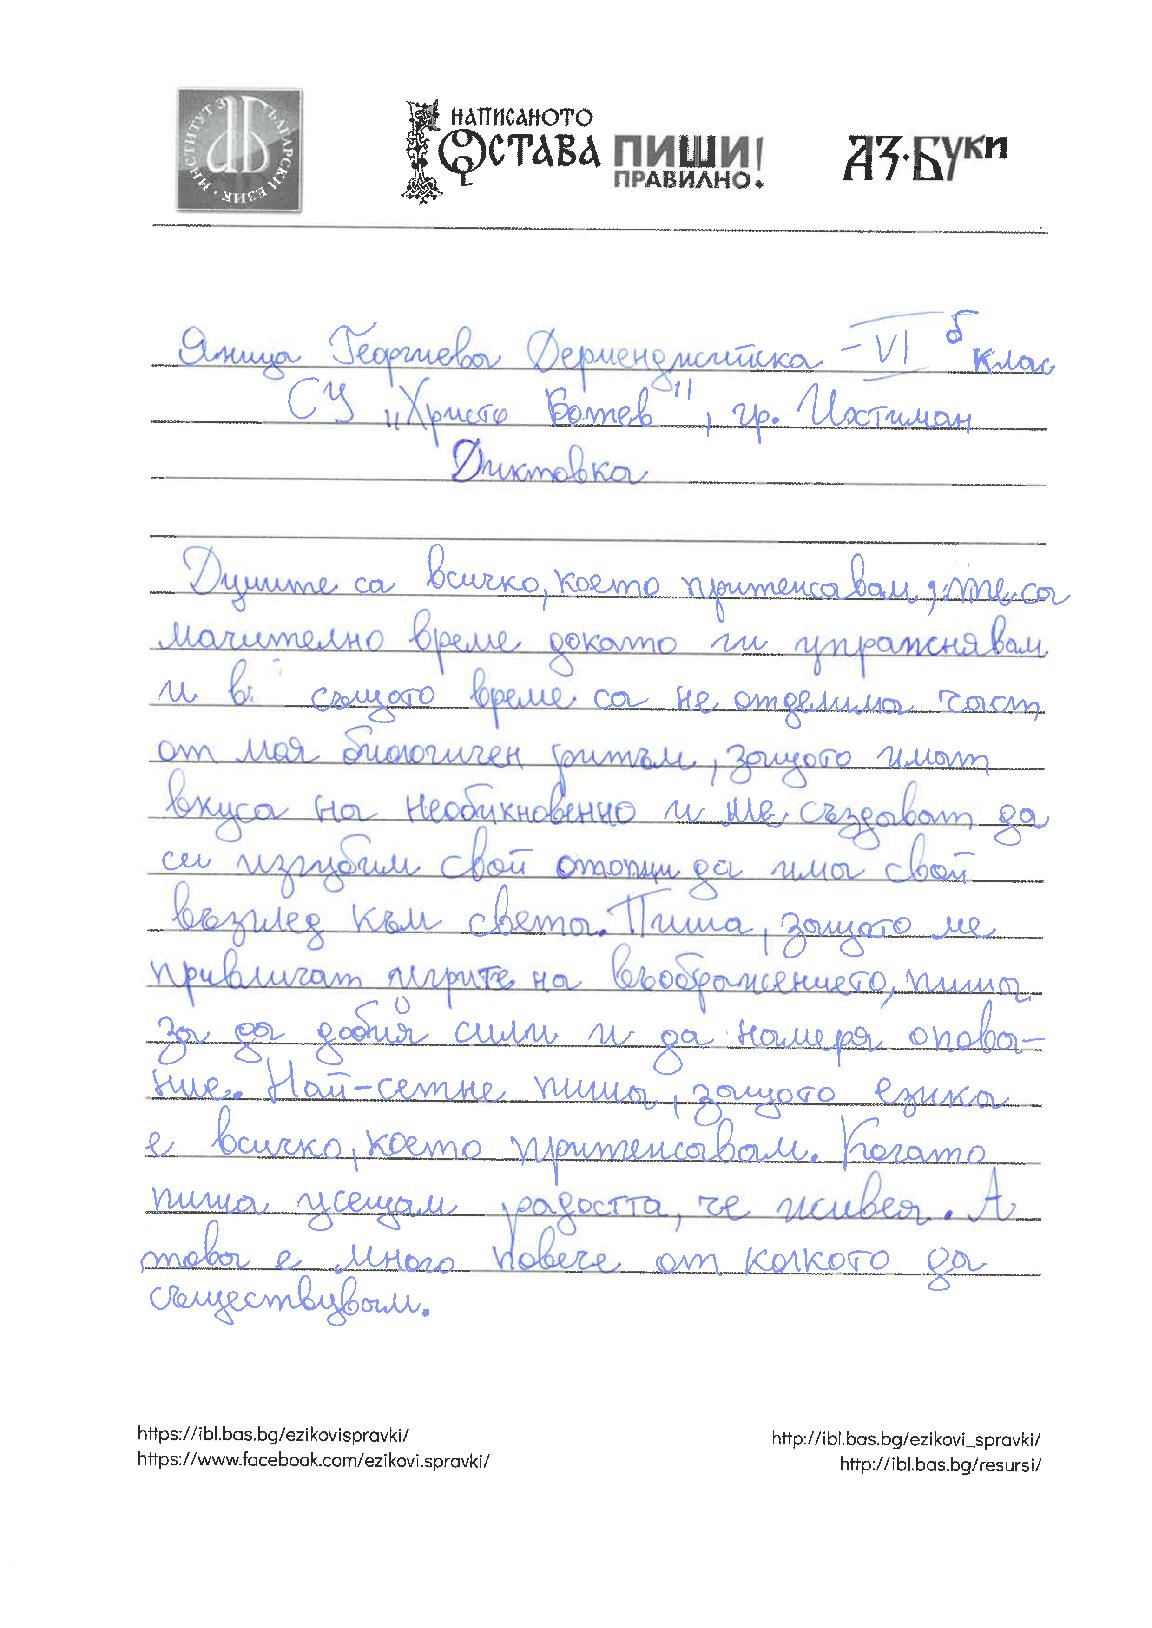 ИНСТИТУТ ЗА БЪЛГАРСКИ ЕЗИК
НАПИСАНОТО
ОСТАВА ПИШИ!
ПРАВИЛНО.
АЗ·БУКИ
Яница Георгиева Дерменджийска – VI б клас
СУ „Христо Ботев", гр. Ихтиман
Диктовка
Думите са всичко, което притежавам, те са
мачително време докато ги упражнявам
и в същото време са не отделима част
от моя биологичен ритъм, защото имат
вкуса на необикновенно и ме създават да
си изгубим свой да има свой
възглед към света. Пиша, защото ме
привличат игрите на въображението, пиша
за да добия сили и да намеря опова-
ние. Най-сетне пиша, защото езика
е всичко, което притежавам. Когато
пиша усещам радостта, че живея. А
това е много повече от колкото да
съществувам.
https://ibl.bas.bg/ezikovispravki/
https://www.facebook.com/ezikovi.spravki/
http://ibl.bas.bg/ezikovi_spravki/
http://ibl.bas.bg/resursi/